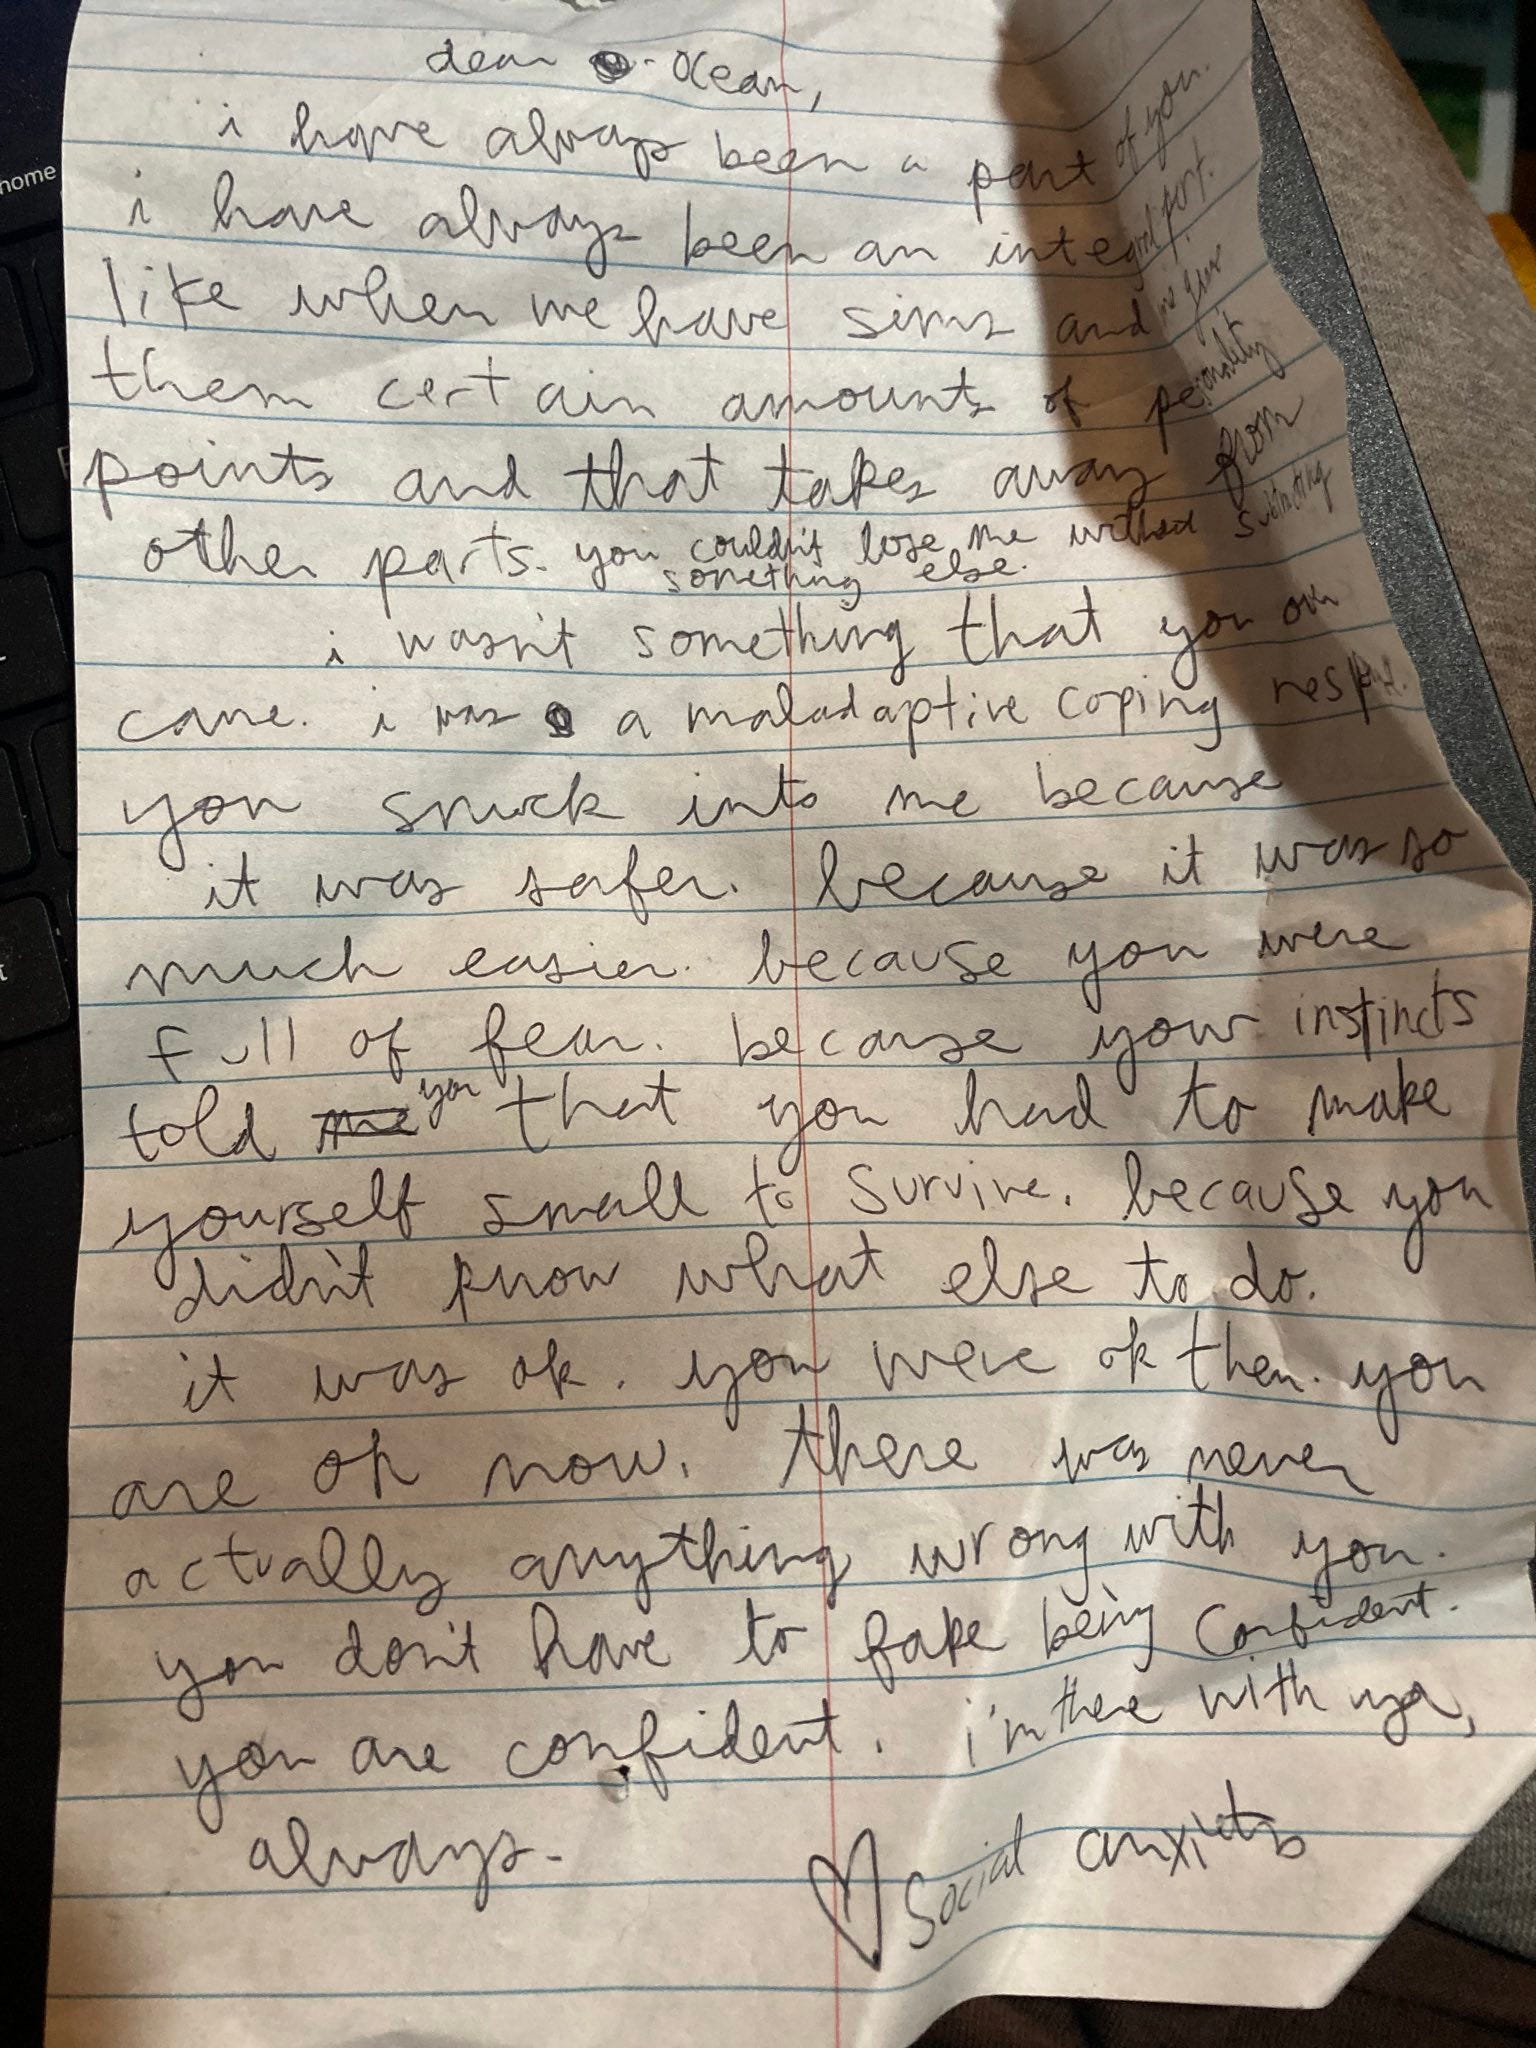 home
dear ocean,
i have always been a part of you.
i have always been an integral part.
like when we have sims and we give
them certain amounts of personality
points and that takes away from
other parts. you couldn't lose me without subtracting
something else.
i wasn't something that you over
came. i was a maladaptive coping
you snuck into me because
it was safer. because it was so
much easier. because you were
full of fear. because your instincts
told me you that you had to make
yourself small to survive. because you
didn't know what else to do.
it was ok. you were ok then. you
are ok now. there was never
actually anything wrong with you.
you don't have to fake being confident.
you are confident. i'm there with ya,
always.
♡ social anxiety